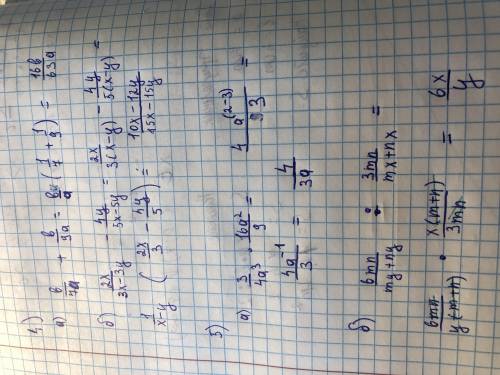 4.)
а) b/7a + b/9a = b/a (1/7 + 1/9) = 16b/63a
б) 2x/3x-3y - 4y/5x-5y = 2x/3(x-y) - 4y/5(x-y) =
1/x-y (2x/3 - 4y/5) = 10x-12y/15x-15y
5)
а) 3/4a³ · 16a²/9 = 4 a^(2-3)/3 =
4a⁻¹/3 = 4/3a
б) 6mn/my+ny : 3mn/mx+nx =
6mn/y(m+n) · x(m+n)/3mn = 6x/y